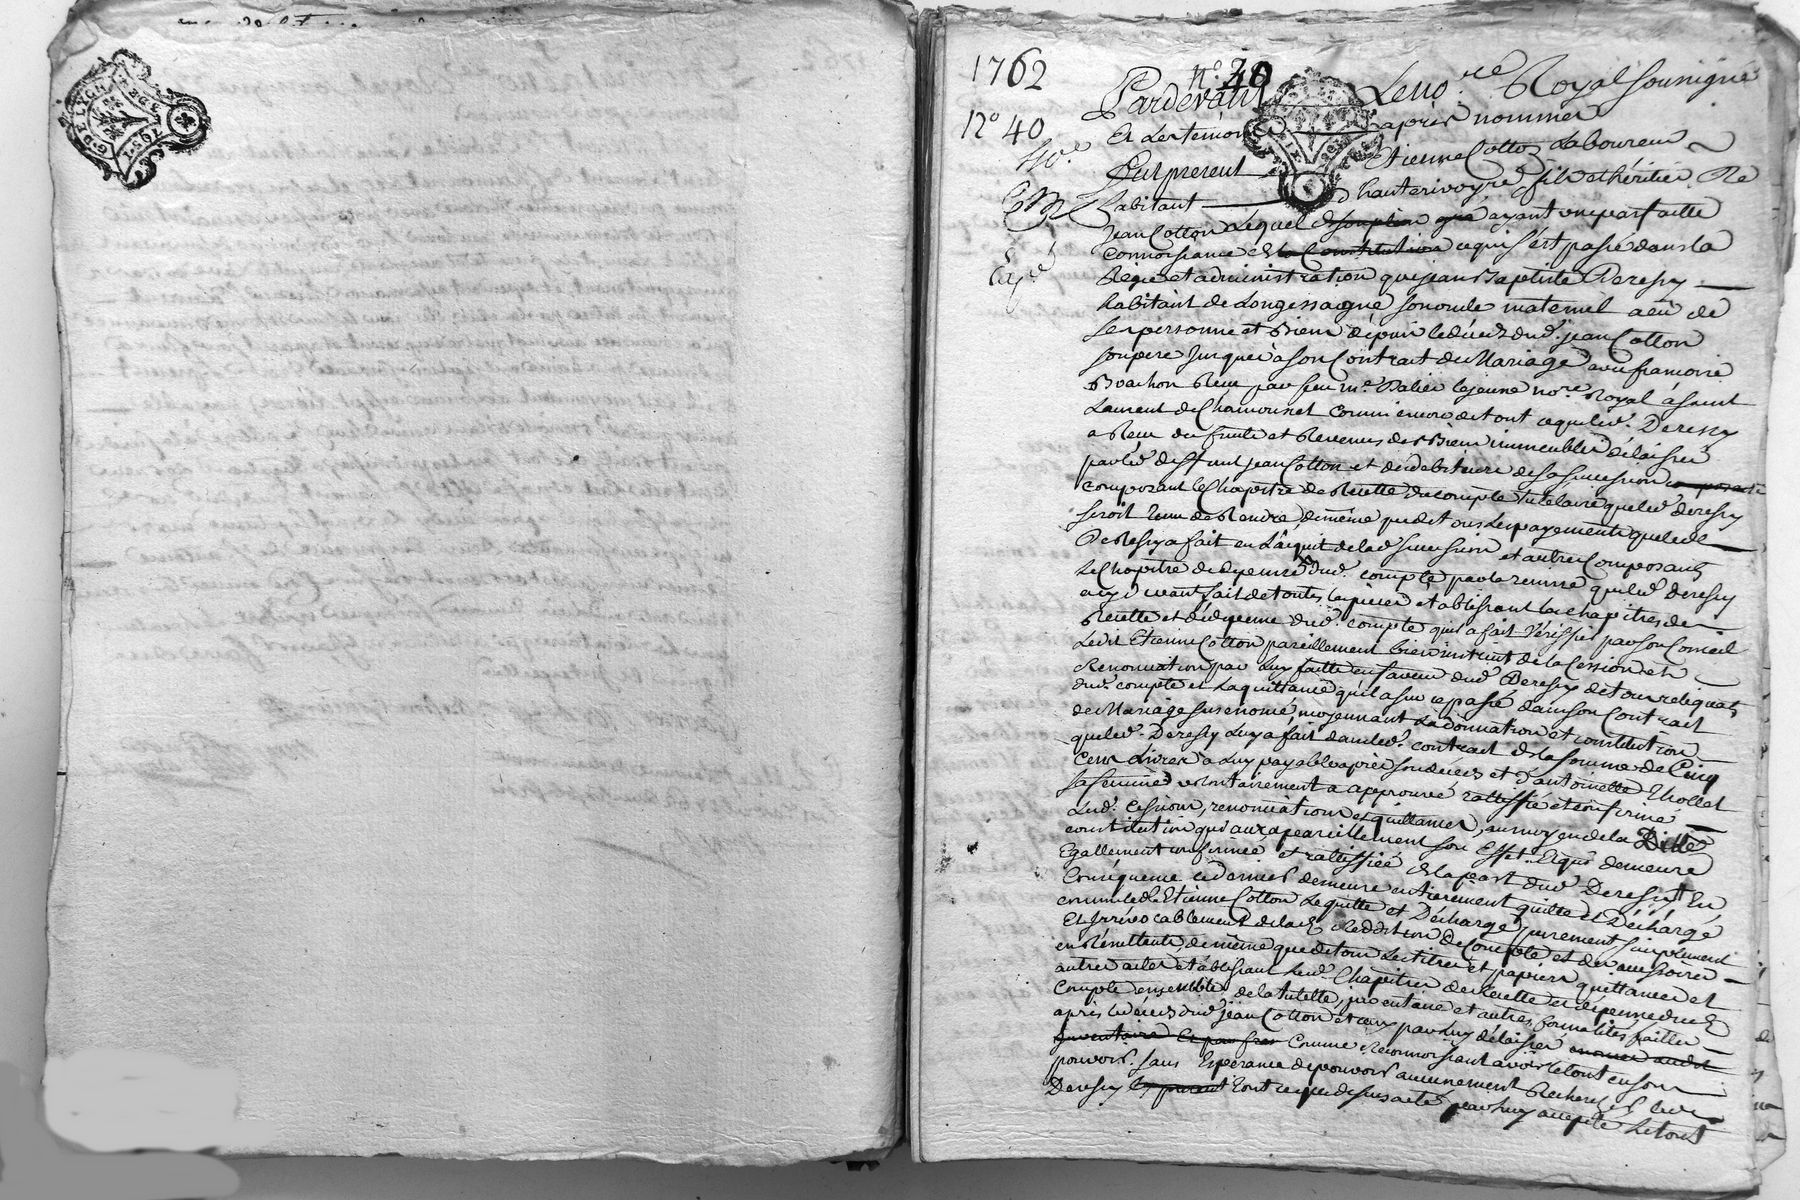 G. DE LYON
1762
n.° 40
n° 40
Pardevant Le no.re Royal Soussigné
Et Les temoins après nommés
Fut present Etienne Cotton Laboureur
habitant d'hauterivoyre fils et héritier De
Jean Cotton Lequel ayant une parfaitte
connoissance ce qui s'est passé dans la
Régie et administration que jean Baptiste Deressy
habitant de Longessagne son oncle maternel a eu de
ses personne et Biens depuis le décès dud. jean Cotton
son pere jusques à son Contrait de Mariage avec francoise
Bouchon Reçu par feu m.e Balier le jeune no.re Royal à saint
Laurent de Chamousset comm'encore de tout ce que led. Deressy
a Reçu des fruits et Revenus des Biens immeubles délaissés
par led. deffunt jean Cotton et des debiteurs de sa succession
composant le Chapitre de Recette du compte tutelaire que led. deressy
seroit tenu de Rendre, de même que de tous Les payements que led.
Deressy a fait en L'acquit de lad. succession et autres Composant
Le Chapitre de depense dud. compte, par la remise que led. deresy
a cy devant fait de toutes les pieces etablissant les chapitres de
Recette et de depense dud. compte qu'il a fait vérifier par son Conseil
Ledit Etienne Cotton pareillement bien instruit de la Cession et
Renonciation par Luy faitte en faveur dud. Deresy de tous reliquats
dud. compte et La quittance qu'il a sur ce passé dans son Contrait
de Mariage susenoncé, moyennant La donnation et constitution
que led. Deresy Luy a fait dans led. contrait de la somme de Cinq
Cens Livres à Luy payable après son décès et d'antoinette Thollet
sa femme, volontairement a approuvé rattiffié et confirmé
Lesd. cession, renonciations et quittances, au moyen de la Ditte
constitution qui aura pareillement son Effet Et qui demeure
Egallement confirmée et rattiffiée de la part dud. Deresy En
Conséquence ce dernier demeure entierement quitte et Déchargé
comme led. Etienne Cotton Le quitte et Décharge purement simplement
Et Irrévocablement de lad. Reddition de Compte et des accessoires
en Remettant, de même que de tous Les titres et papiers quittances et
autres actes etablissant Lesd. Chapitres de recette et dépense dud.
compte ensemble de la tutelle, inventaire et autres formalités faittes
après le décès dud. jean Cotton et ceux par Luy délaissés
Inventaire Comme Reconnoissant avoir le tout en son
pouvoir. sans Espérance de pouvoir aucunement Rechercher led.
Deresy tout ce que dessus acte par Luy accepté Le tout